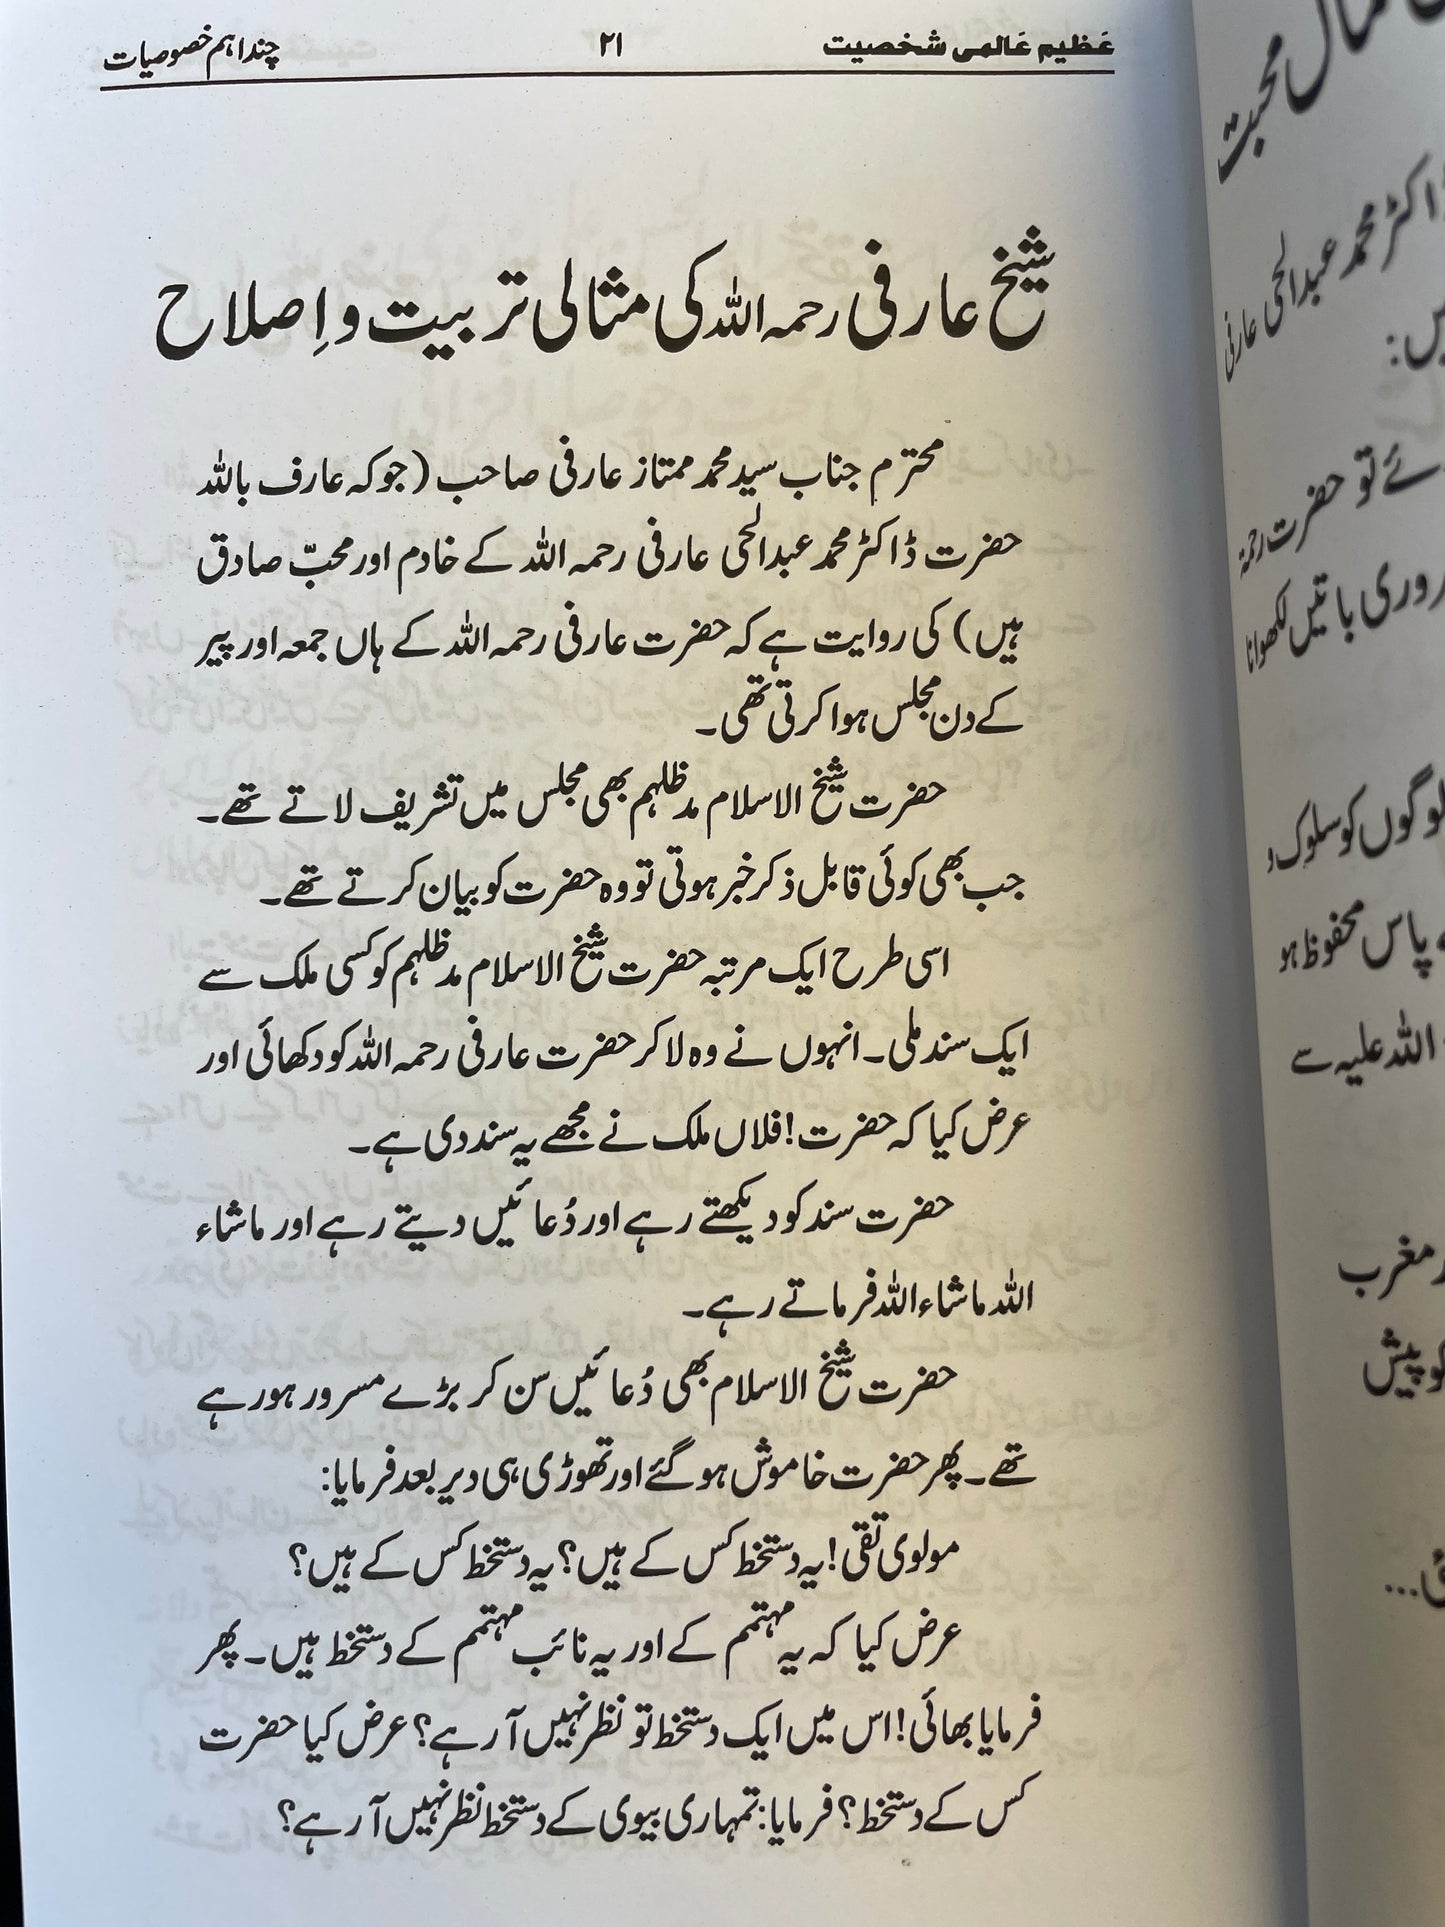 عظیم عالمی شخصیت ۲۱ چند اہم خصوصیات
شیخ عارفی رحمہ اللہ کی مثالی تربیت و اِصلاح
محترم جناب سید محمد ممتاز عارفی صاحب (جو کہ عارف باللہ
حضرت ڈاکٹر محمد عبدالحی عارفی رحمہ اللہ کے خادم اور محبّ صادق
ہیں) کی روایت ہے کہ حضرت عارفی رحمہ اللہ کے ہاں جمعہ اور پیر
کے دن مجلس ہوا کرتی تھی۔
حضرت شیخ الاسلام مدظلہم بھی مجلس میں تشریف لاتے تھے۔
جب بھی کوئی قابل ذکر خبر ہوتی تو وہ حضرت کو بیان کرتے تھے۔
اسی طرح ایک مرتبہ حضرت شیخ الاسلام مدظلہم کو کسی ملک سے
ایک سند ملی۔ انہوں نے وہ لاکر حضرت عارفی رحمہ اللہ کو دکھائی اور
عرض کیا کہ حضرت! فلاں ملک نے مجھے یہ سند دی ہے۔
حضرت سند کو دیکھتے رہے اور دُعائیں دیتے رہے اور ماشاء
اللہ ماشاء اللہ فرماتے رہے۔
حضرت شیخ الاسلام بھی دُعائیں سن کر بڑے مسرور ہورہے
تھے۔ پھر حضرت خاموش ہوگئے اور تھوڑی ہی دیر بعد فرمایا:
مولوی تقی! یہ دستخط کس کے ہیں؟ یہ دستخط کس کے ہیں؟
عرض کیا کہ یہ مہتمم کے اور یہ نائب مہتمم کے دستخط ہیں۔ پھر
فرمایا بھائی! اس میں ایک دستخط تو نظر نہیں آ رہے؟ عرض کیا حضرت
کس کے دستخط؟ فرمایا: تمہاری بیوی کے دستخط نظر نہیں آ رہے؟
محبت
ڈاکٹر محمد عبدالحی عارفی
تو حضرت رحمۃ
باتیں لکھوانا
لوگوں کو سلوک و
پاس محفوظ ہو
اللہ علیہ سے
مغرب
کو پیش